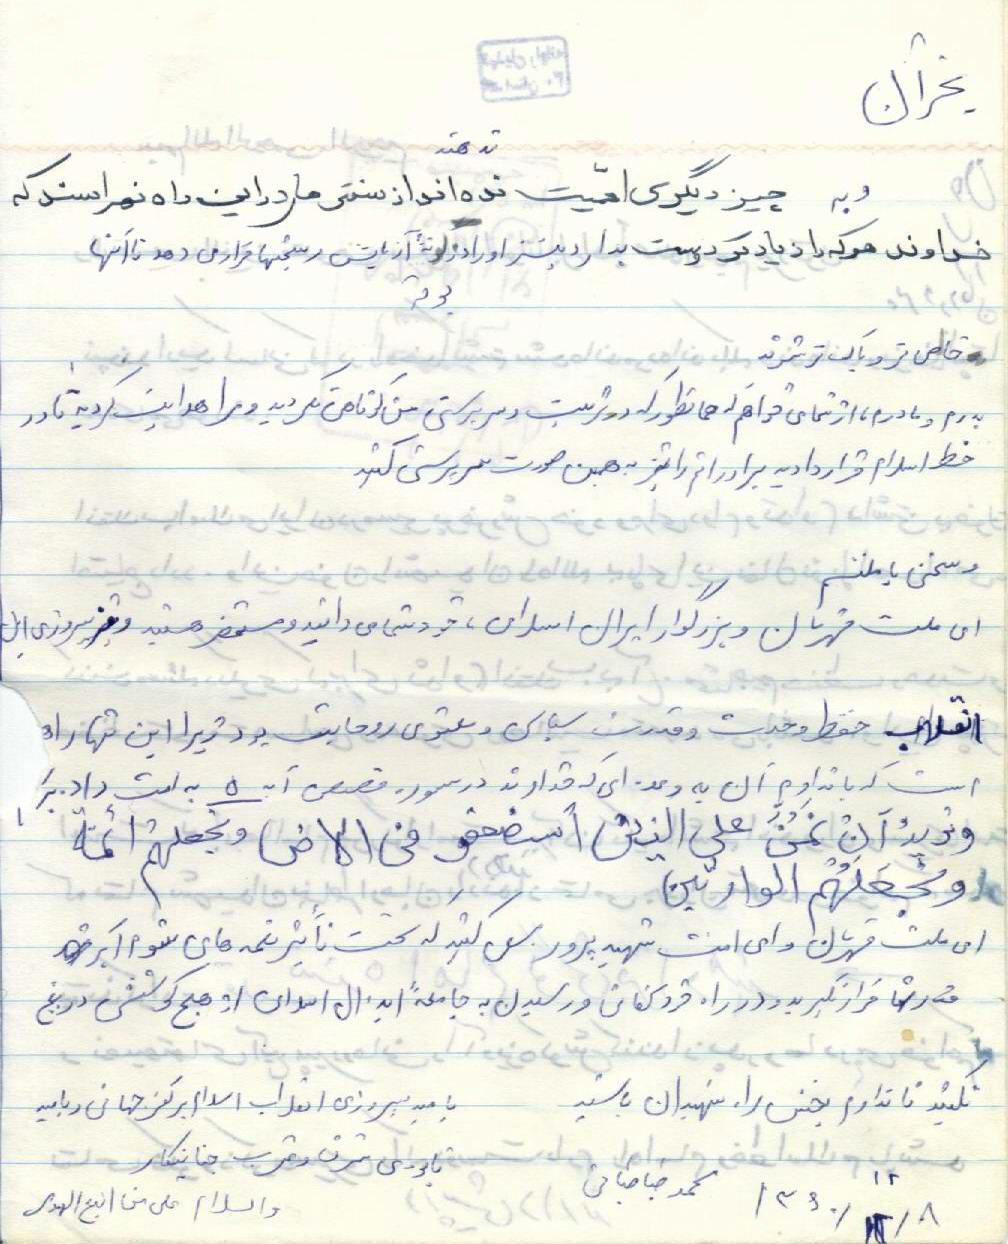 تد هند
و به چیز دیگری اهمیّت نده اند از سختی ها در این راه نهراسند که
خداوند هر که را زیادتر دوست بدارد بیشتر او را در کورهٔ آزمایش و سختیها قرار می دهد تا آنها
خالص تر و پاک تر شوند
پدرم و مادرم، از شما می خواهم که همانطور که در تربیت و سرپرستی من کوتاهی نکردید و مرا هدایت کردید تا در
خط اسلام قرار دادید برادرانم را نیز به همین صورت سرپرستی کنید
و سخنی با ملتم
ای ملت قهرمان و بزرگوار ایران اسلامی، خود شما می دانید و مستحضر هستید رمز پیروزی این
انقلاب حفظ وحدت و قدرت سیاسی و معنوی روحانیت بود زیرا این تنها راه
است که با تداوم آن به وعده ای که خداوند در سوره قصص آیه ۵ به امت داد
و نرید أن نَمُنَّ علی الذین أستضعفو فی الارض و نجعلهم ائمة
و نجعلهُم الوارثین
ای ملت قهرمان و ای امت شهید پرور سعی کنید که تحت تأثیر نغمه های شوم ابرقدرتها قرار نگیرید و در راه خودکفائی و رسیدن به جامعهٔ ایده ال اسلامی از هیچ کوششی دریغ
نکنید تا تداوم بخش راه شهیدان باشید
بامید پیروزی انقلاب اسلام بر کفر جهانی و بامید
نابودی شرق و غرب جنایتکار
محمد
۱۳۶۰/۱۲/۸
۱۲
والسلام علی من اتبع الهدی